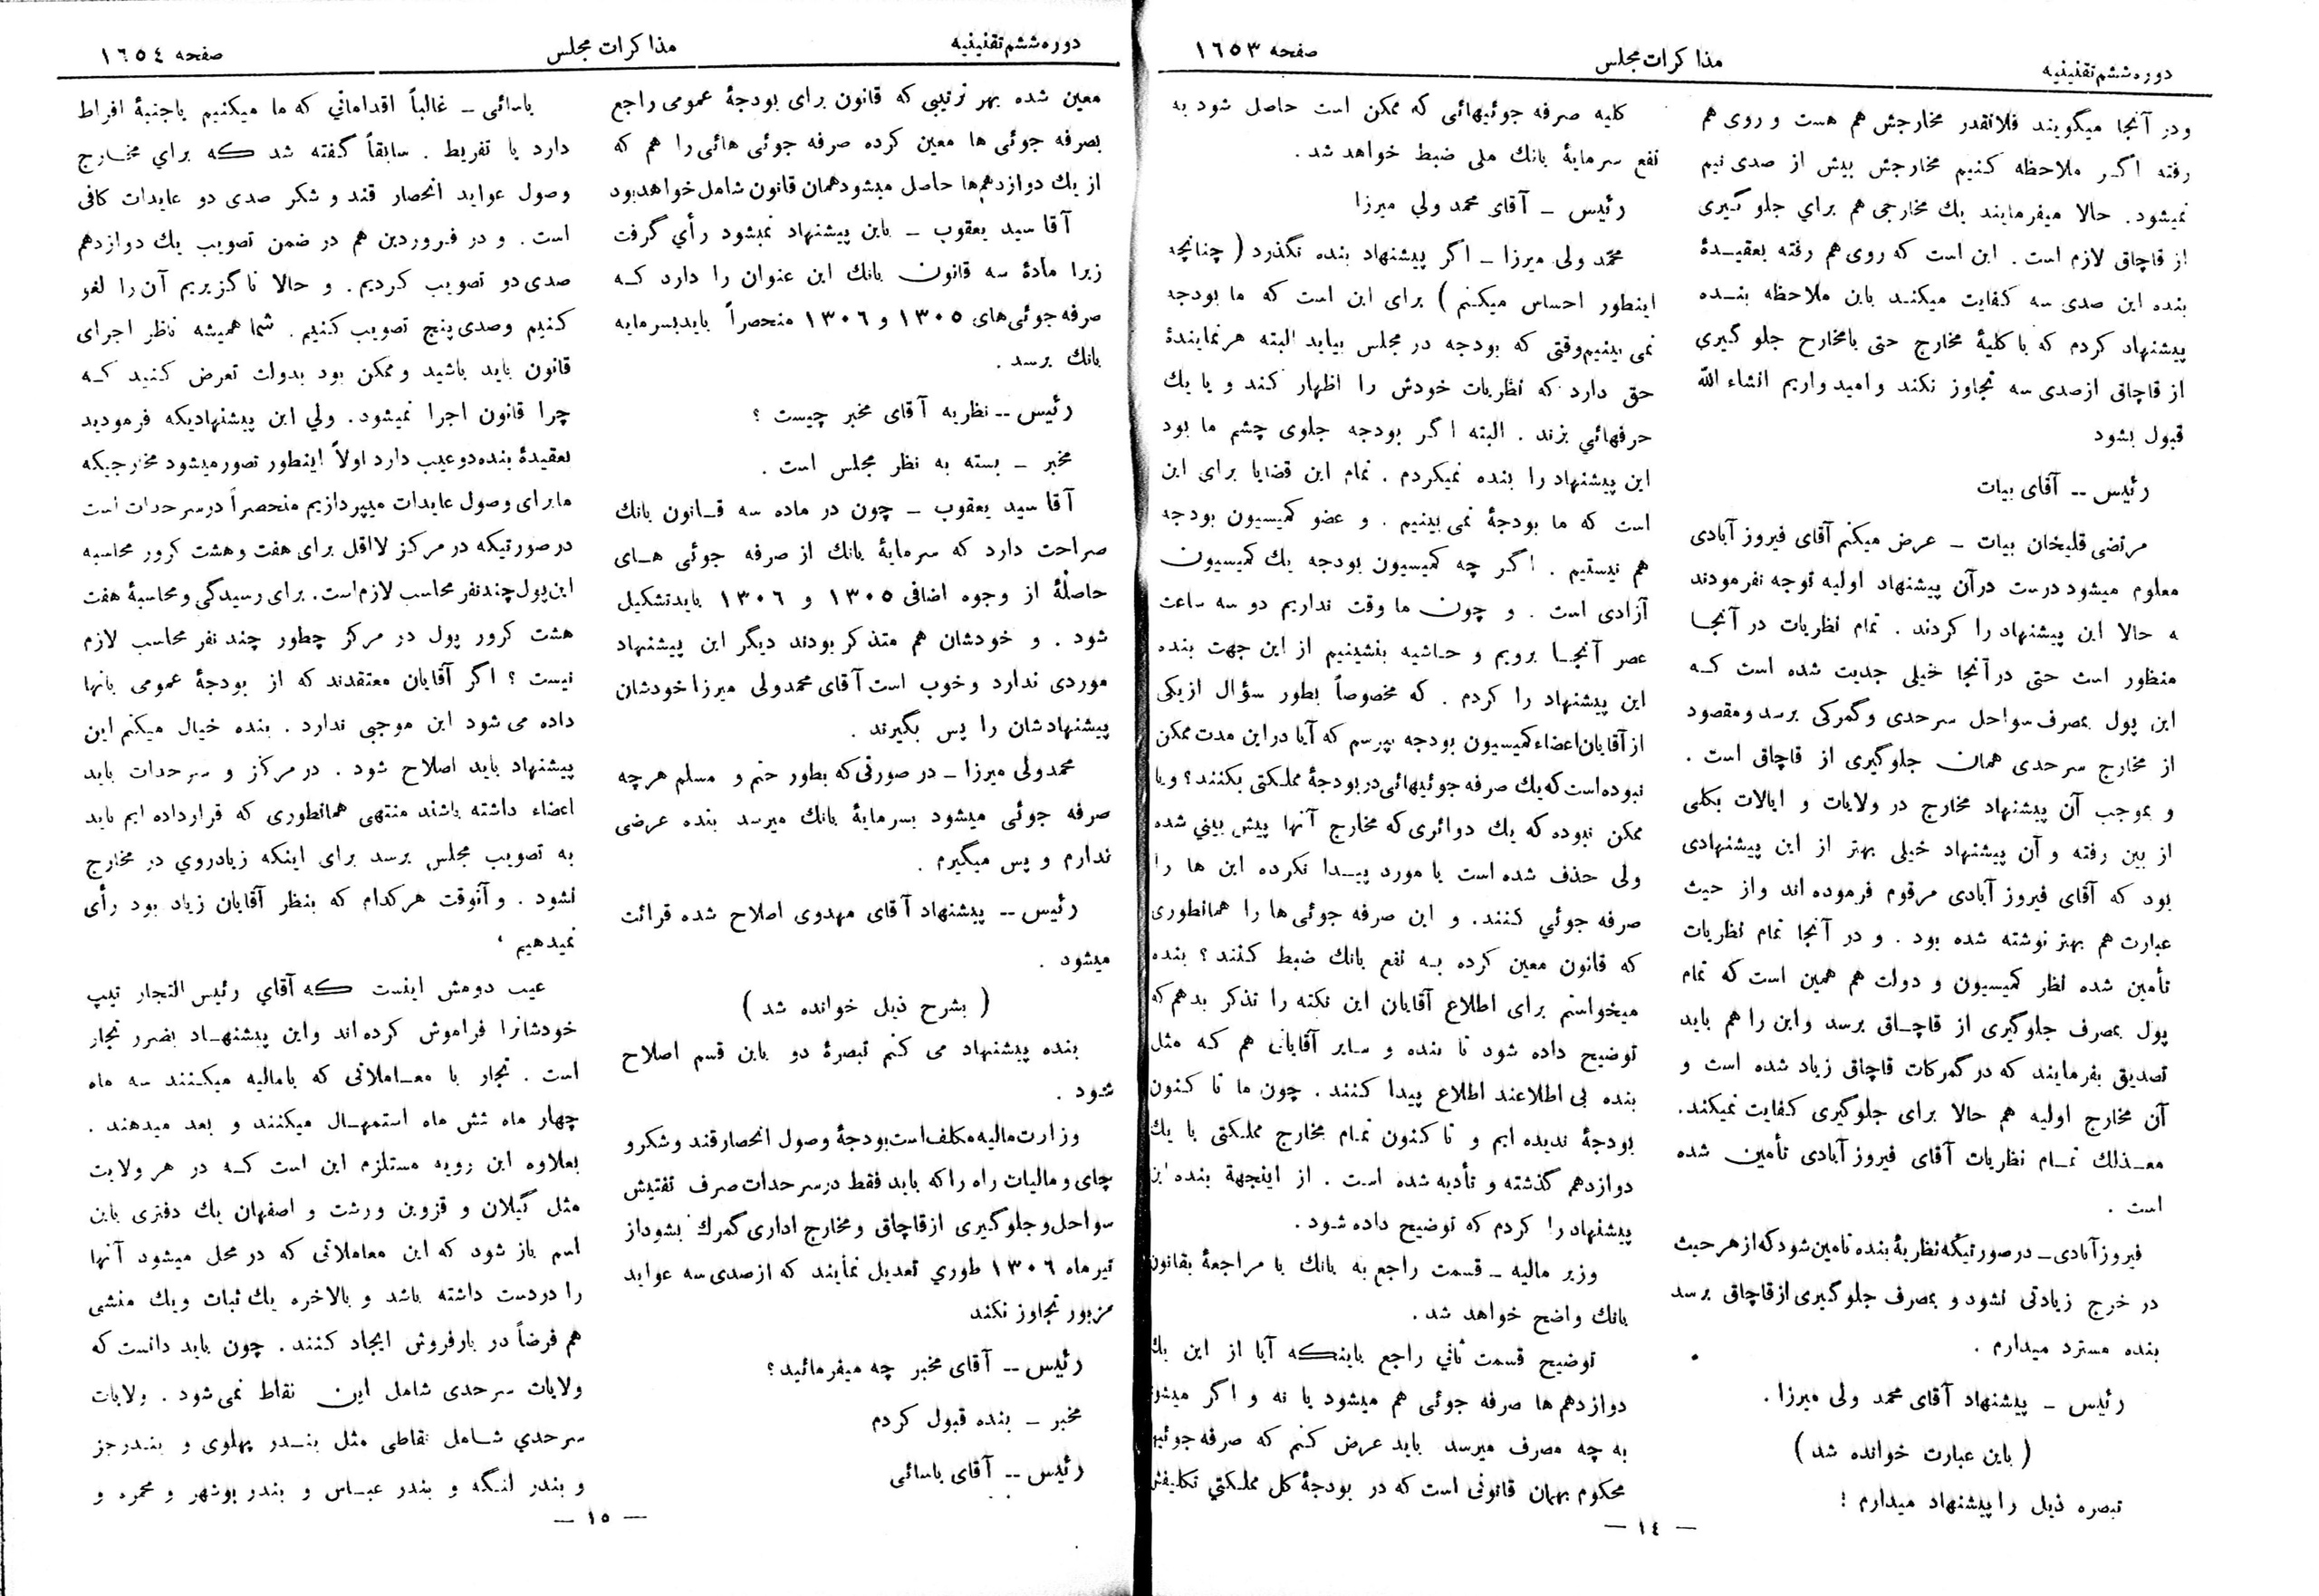 دوره ششم تقنینیه
مذاکرات مجلس
صفحه ١٦٥٣
ودر آنجا میگویند فلانقدر مخارجش هم هست و روی هم
رفته اگر ملاحظه کنیم مخارجش بیش از صدی نیم
نمیشود. حالا میفرمایند یك مخارجی هم برای جلو گیری
از قاچاق لازم است . این است که روی هم رفته بعقیدۀ
بنده این صدی سه کفایت میکند باین ملاحظه بنده
پیشنهاد کردم که با کلیۀ مخارج حتی بامخارج جلو گیری
از قاچاق ازصدی سه تجاوز نکند و امید واریم انشاء الله
قبول بشود
رئیس -- آقای بیات
مرتضی قلیخان بیات - عرض میکنم آقای فیروز آبادی
معلوم میشود درست درآن پیشنهاد اولیه توجه نفرمودند
ه حالا این پیشنهاد را کردند . تمام نظریات در آنجا
منظور است حتی در آنجا خیلی جدیت شده است که
این پول بمصرف سواحل سرحدی وگمرکی برسد ومقصود
از مخارج سرحدی همان جلوگیری از قاچاق است .
و بموجب آن پیشنهاد مخارج در ولایات و ایالات بکلی
از بین رفته و آن پیشنهاد خیلی بهتر از این پیشنهادی
بود که آقای فیروز آبادی مرقوم فرموده اند واز حیث
عبارت هم بهتر نوشته شده بود . و در آنجا تمام نظریات
تأمین شده نظر کمیسیون و دولت هم همین است که تمام
پول بمصرف جلوگیری از قاچاق برسد واین را هم باید
تصدیق بفرمایند که در گمرکات قاچاق زیاد شده است و
آن مخارج اولیه هم حالا برای جلوگیری کفایت نمیکند.
معذلك تمام نظریات آقای فیروز آبادی تأمین شده
است .
فیروز آبادی - در صورتیکه نظریۀ بنده تامین شود که از هر حیث
در خرج زیادتی نشود و بمصرف جلوگیری از قاچاق برسد
بنده مسترد میدارم .
رئیس - پیشنهاد آقای محمد ولی میرزا .
( باین عبارت خوانده شد )
تبصره ذیل را پیشنهاد میدارم :
کلیه صرفه جوئیهائی که ممکن است حاصل شود به
نفع سرمایۀ بانك ملی ضبط خواهد شد .
رئیس - آقای محمد ولی میرزا
محمد ولی میرزا - اگر پیشنهاد بنده نگذرد ( چنانچه
اینطور احساس میکنم ) برای این است که ما بودجه
نمی بینیم وقتی که بودجه در مجلس بیاید البته هر نمایندۀ
حق دارد که نظریات خودش را اظهار کند و یا یك
حرفهائی بزند . البته اگر بودجه جلوی چشم ما بود
این پیشنهاد را بنده نمیکردم . تمام این قضایا برای این
است که ما بودجۀ نمی بینیم . و عضو کمیسیون بودجه
هم نیستیم . اگر چه کمیسیون بودجه یك کمیسیون
آزادی است . و چون ما وقت نداریم دو سه ساعت
عصر آنجا برویم و حاشیه بنشینیم از این جهت بنده
این پیشنهاد را کردم . که مخصوصاً بطور سؤال ازیکی
از آقایان اعضاء کمیسیون بودجه بپرسم که آیا در این مدت ممکن
نبوده است که یك صرفه جوئیهائی در بودجۀ مملکتی بکنند؟ و یا
ممکن نبوده که یك دوائری که مخارج آنها پیش بینی شده
ولی حذف شده است یا مورد پیدا نکرده این ها را
صرفه جوئی کنند. و این صرفه جوئی ها را همانطوری
که قانون معین کرده به نفع بانك ضبط کنند ؟ بنده
میخواستم برای اطلاع آقایان این نکته را تذکر بدهم که
توضیح داده شود تا بنده و سایر آقایان هم که مثل
بنده بی اطلاعند اطلاع پیدا کنند . چون ما تا کنون
بودجۀ ندیده ایم و تا کنون تمام مخارج مملکتی با یك
دوازدهم گذشته و تأدیه شده است . از اینجهة بنده این
پیشنهاد را کردم که توضیح داده شود .
وزیر مالیه - قسمت راجع به بانك با مراجعۀ بقانون
بانك واضح خواهد شد .
توضیح قسمت ثانی راجع باینکه آیا از این یك
دوازدهم ها صرفه جوئی هم میشود یا نه و اگر میشو
به چه مصرف میرسد باید عرض کنم که صرفه جوئیه
محکوم بهمان قانونی است که در بودجۀ کل مملکتی تکلیفش
— ١٤ —
دوره ششم تقنینیه
مذاکرات مجلس
صفحه ١٦٥٤
معین شده بهر ترتیبی که قانون برای بودجۀ عمومی راجع
بصرفه جوئی ها معین کرده صرفه جوئی هائی را هم که
از یك دوازدهم‌ها حاصل میشود همان قانون شامل خواهد بود
آقا سید یعقوب - باین پیشنهاد نمیشود رأی گرفت
زیرا مادۀ سه قانون بانك این عنوان را دارد که
صرفه جوئی‌های ١٣٠٥ و ١٣٠٦ منحصراً باید بسرمایه
بانك برسد .
رئیس -- نظریه آقای مخبر چیست ؟
مخبر - بسته به نظر مجلس است .
آقا سید یعقوب - چون در ماده سه قانون بانك
صراحت دارد که سرمایۀ بانك از صرفه جوئی های
حاصلۀ از وجوه اضافی ١٣٠٥ و ١٣٠٦ باید تشکیل
شود . و خودشان هم متذکر بودند دیگر این پیشنهاد
موردی ندارد و خوب است آقای محمدولی میرزا خودشان
پیشنهادشان را پس بگیرند .
محمدولی میرزا - در صورتی که بطور حتم و مسلم هرچه
صرفه جوئی میشود بسرمایۀ بانك میرسد بنده عرضی
ندارم و پس میگیرم .
رئیس -- پیشنهاد آقای مهدوی اصلاح شده قرائت
میشود .
( بشرح ذیل خوانده شد )
بنده پیشنهاد می کنم تبصرۀ دو باین قسم اصلاح
شود .
وزارت مالیه مکلف است بودجۀ وصول انحصار قند و شکر و
چای و مالیات راه را که باید فقط در سرحدات صرف تفتیش
سواحل و جلوگیری از قاچاق و مخارج اداری گمرك بشود از
تیر ماه ١٣٠٦ طوری تعدیل نمایند که از صدی سه عواید
مزبور تجاوز نکند
رئیس -- آقای مخبر چه میفرمائید؟
مخبر - بنده قبول کردم
رئیس -- آقای یاسائی
یاسائی - غالباً اقداماتی که ما میکنیم یاجنبۀ افراط
دارد یا تفریط . سابقاً گفته شد که برای مخارج
وصول عواید انحصار قند و شکر صدی دو عایدات کافی
است . و در فروردین هم در ضمن تصویب یك دوازدهم
صدی دو تصویب کردیم . و حالا ناگزیریم آن را لغو
کنیم وصدی پنج تصویب کنیم . شما همیشه ناظر اجرای
قانون باید باشید و ممکن بود بدولت تعرض کنید که
چرا قانون اجرا نمیشود . ولی این پیشنهادیکه فرمودید
بعقیدۀ بنده دو عیب دارد اولاً اینطور تصور میشود مخارجیکه
ما برای وصول عایدات میپردازیم منحصراً در سرحدات است
در صورتیکه در مرکز لااقل برای هفت و هشت کرور محاسبه
این پول چند نفر محاسب لازم است . برای رسیدگی و محاسبۀ هفت
هشت کرور پول در مرکز چطور چند نفر محاسب لازم
نیست ؟ اگر آقایان معتقدند که از بودجۀ عمومی بانها
داده می شود این موجبی ندارد . بنده خیال میکنم این
پیشنهاد باید اصلاح شود . در مرکز و سرحدات باید
اعضاء داشته باشند منتهی همانطوری که قرارداده ایم باید
به تصویب مجلس برسد برای اینکه زیادروی در مخارج
نشود . و آنوقت هرکدام که بنظر آقایان زیاد بود رأی
نمیدهیم ،
عیب دومش اینست که آقای رئیس التجار تیپ
خودشانرا فراموش کرده اند واین پیشنهاد بضرر تجار
است . تجار با معاملاتی که بامالیه میکنند سه ماه
چهار ماه شش ماه استمهال میکنند و بعد میدهند .
بعلاوه این رویه مستلزم این است که در هر ولایت
مثل گیلان و قزوین و رشت و اصفهان یك دفتری باین
اسم باز شود که این معاملاتی که در محل میشود آنها
را در دست داشته باشد و بالاخره یك ثبات ویك منشی
هم فرضاً در بارفروش ایجاد کنند . چون باید دانست که
ولایات سرحدی شامل این نقاط نمی شود . ولایات
سرحدی شامل نقاطی مثل بندر پهلوی و بندرجز
و بندر لنگه و بندر عباس و بندر بوشهر و محمره و
— ١٥ —